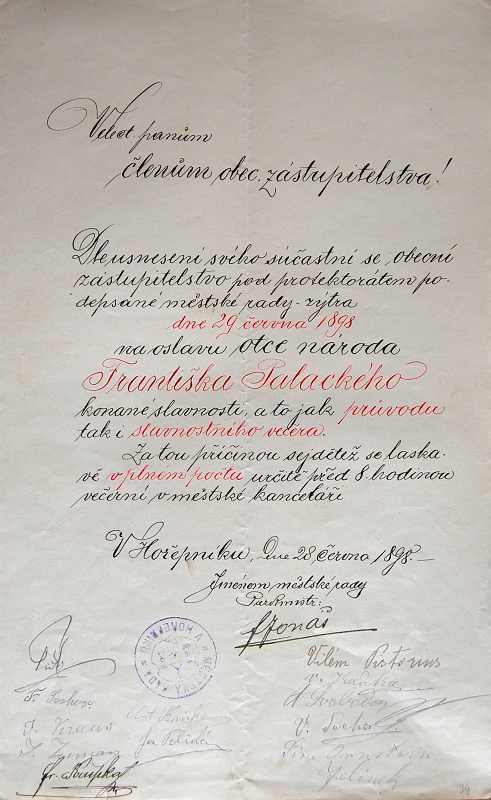 Velect. panům
členům obec. zástupitelstva!
Dle usnesení svého súčastní se obecní
zástupitelstvo pod protektorátem po-
depsané městské rady - zýtra
dne 29 června 1898
na oslavu otce národa
Františka Palackého
konané slavnosti, a to jak průvodu
tak i slavnostního večera.
Za tou příčinou sejdětež se laska-
vě v plném počtu určitě před 8. hodinou
večerní v městské kanceláři
V Hořepníku, dne 28. června 1898.-
Jménem městské rady
Purkmistr:
Jonáš
MĚSTSKÁ RADA V HOŘEPNÍKU
Vilém Pistorius
F. Sochor
A Svoboda
V. Sochor
F. Kraus
F. Zeman
Fr. Krupka
Jelínek
34